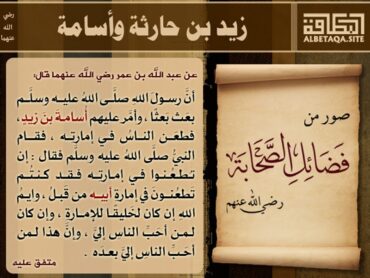 زيد بن حارثة وأسامة
رضي
الله
عنهما
البطاقة
ALBETAQA.SITE
عن عبد اللَّه بن عمر رضي اللَّه عنهما قال:
أنَّ رسولَ اللهِ صلَّى اللهُ عليه وسلَّم
بعث بعثًا، وأمَّر عليهم أسامةَ بنَ زيدٍ،
فطعن الناسُ في إمارتِه ، فقام
النبيُّ صلَّى اللهُ عليه وسلَّم فقال : إن
تطعُنوا في إمارتِه فقد كنتُم
تطعُنونَ في إمارةِ أبيه من قبلُ ، وايمُ
اللهِ إن كان لخليقًا للإمارةِ ، وإن كان
لمن أحَبِّ الناسِ إليَّ ، وإنَّ هذا لمن
أحَبِّ الناسِ إليَّ بعدَه .
متفق عليه
صور من
فضائل الصحابة
رضي الله عنهم